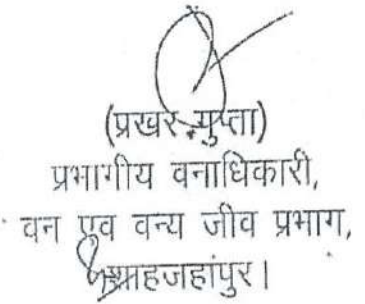 (प्रखर गुप्ता)
प्रभागीय वनाधिकारी,
वन एव वन्य जीव प्रभाग,
शाहजहांपुर।